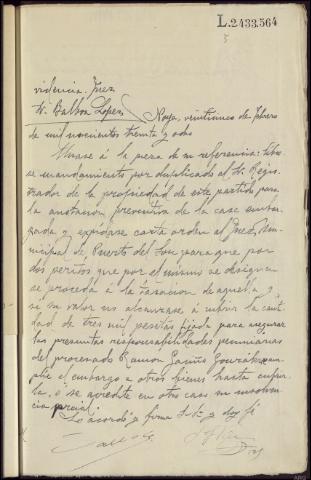 L.2433.564
5
videncia. Juez
Sr. Balboa Lopez Noya, veintiuno de febrero
de mil novecientos treinta y ocho
Unase á la pieza de su referencia: libre-
se mandamiento por duplicado al Sr. Regis-
trador de la propiedad de este partido para
la anotacion preventiva de la casa embar-
gada y expidase carta orden al Juez Mu-
nicipal de Puerto del Son para que por
dos peritos que por el mismo se designen
se proceda á la tasacion de aquella y
si su valor no alcanzase á cubrir la canti-
dad de tres mil pesetas fijada para asegurar
las presuntas responsabilidades pecuniarias
del procesado Ramon González am-
plie el embargo a otros bienes hasta cubrir-
la, ó se acredite en otro caso su insolven-
cia parcial.
Lo acordó y firma S.Sª. doy fé